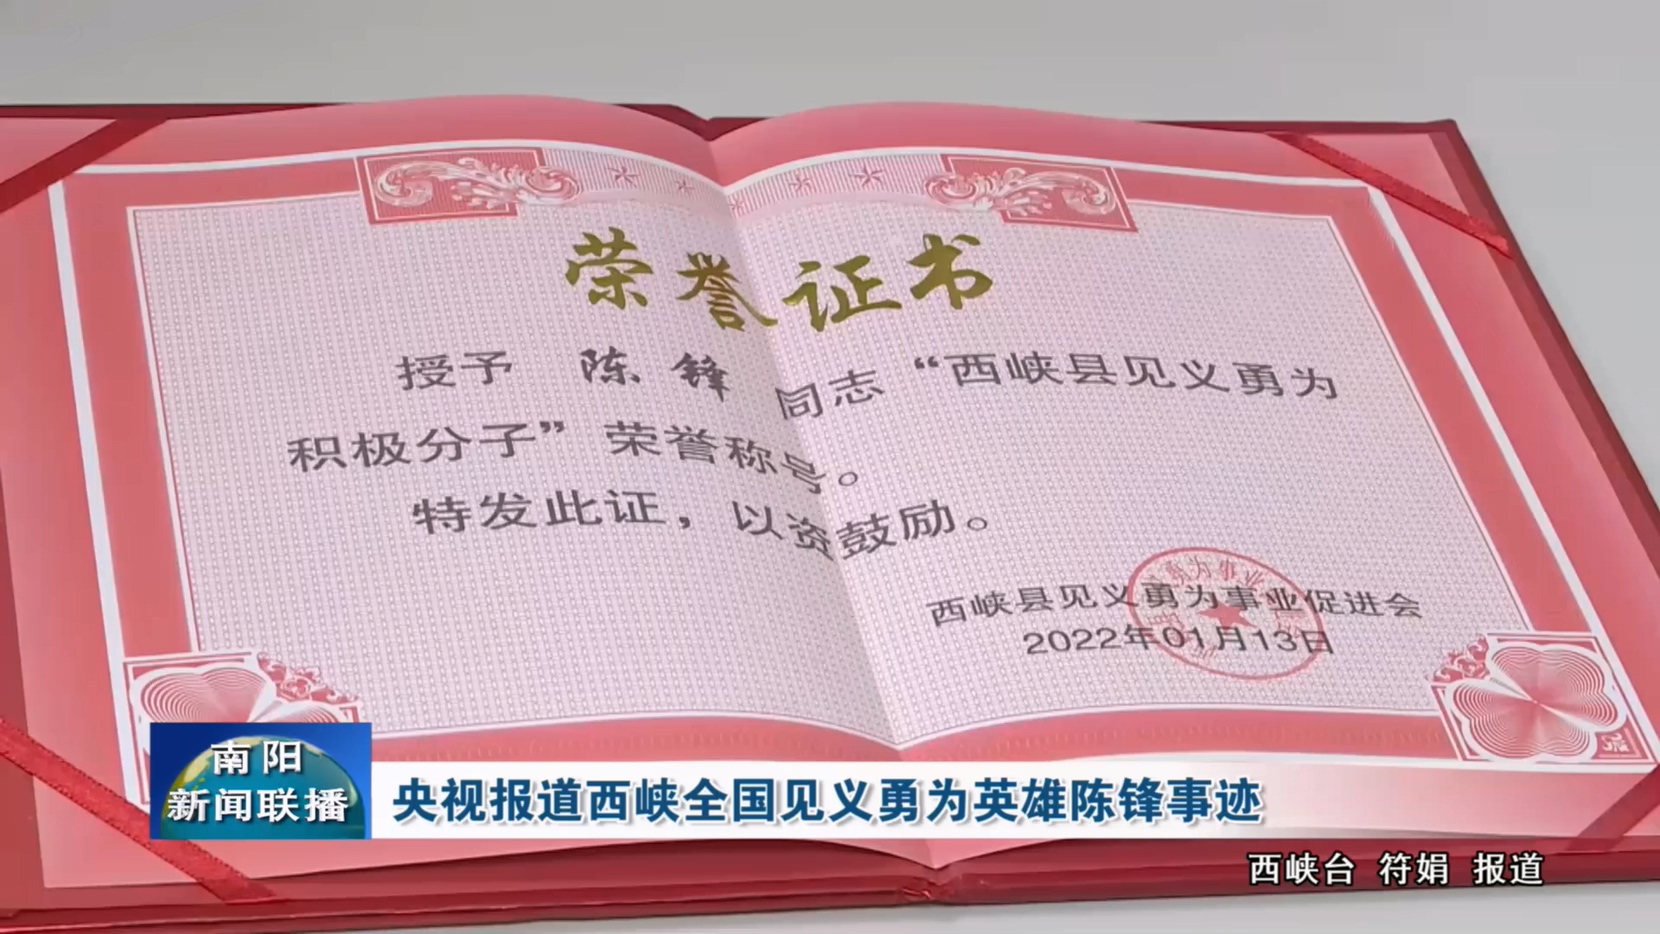 荣誉证书
授予 陈锋 同志“西峡县见义勇为
积极分子”荣誉称号。
特发此证，以资鼓励。
西峡县见义勇为事业促进会
2022年01月13日
南阳
新闻联播
央视报道西峡全国见义勇为英雄陈锋事迹
西峡台 符娟 报道